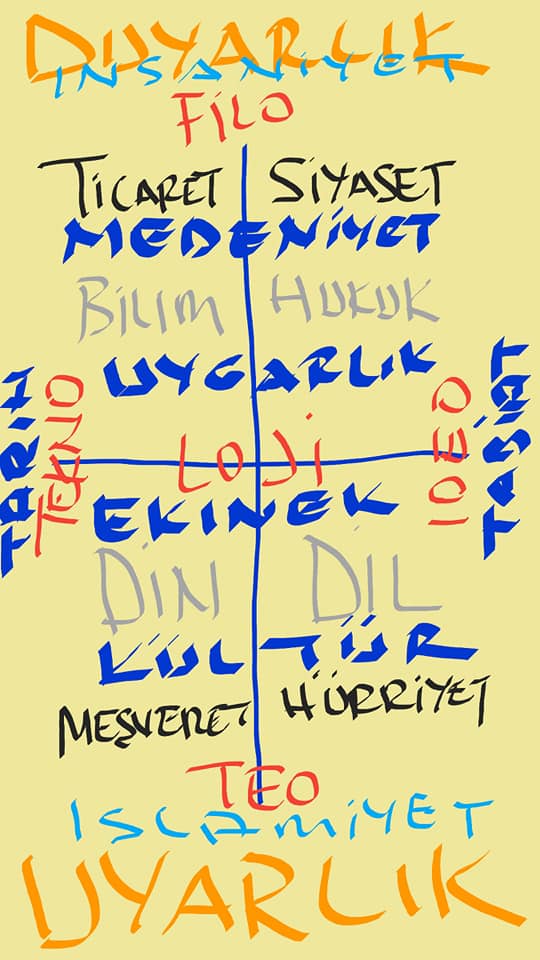 DUYARLIK
INSANİYET
FİLO
TİCARET SİYASET
MEDENİYET
BİLİM HUKUK
UYGARLIK
TARİH
TEKNO
LOJİ
IDEO
TAŞIAT
EKİNEK
DİN DİL
KÜLTÜR
MEŞVERET HÜRRİYET
TEO
ISLAMİYET
UYARLIK